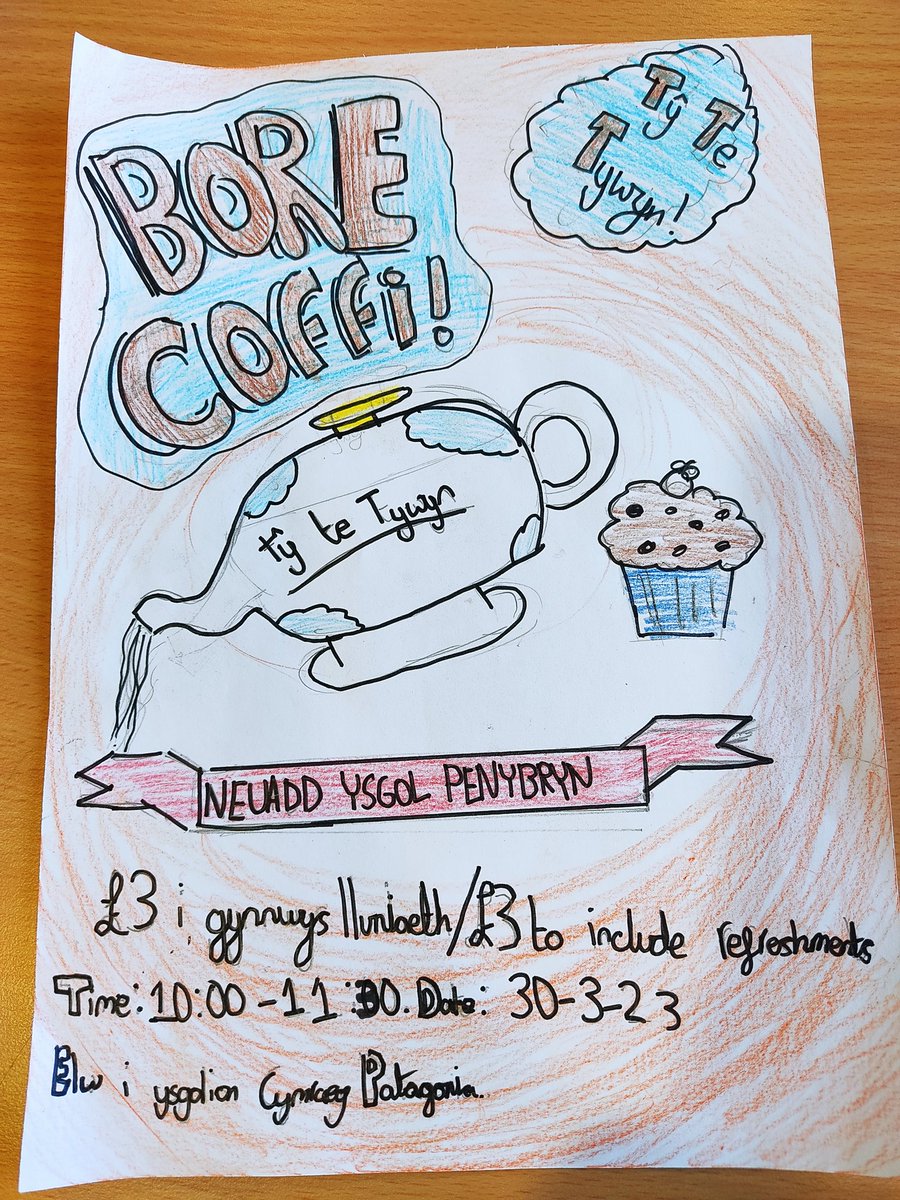 BORE
COFFi!
Ty Te
Tywyn!
tŷ te Tywyn
NEUADD YSGOL PENYBRYN
£3 i gynnwys lluniaeth/£3 to include refreshments
Time: 10:00 - 11:30. Date: 30-3-23
Elw i ysgolion Cymraeg Patagonia.